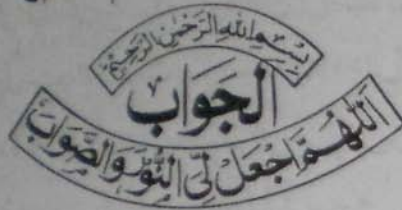 بِسْمِ اللهِ الرَّحْمٰنِ الرَّحِيْمِ
الْجَوَابْ
اَللّٰهُمَّ اجْعَلْ لِّى النُّوْرَ وَالصَّوَابْ